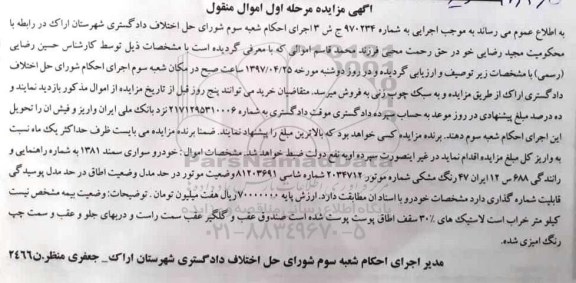 آگهی مزایده مرحله اول اموال منقول
به اطلاع عموم می رساند به موجب اجرایی به شماره ۹۷۰۲۳۴ ج ش ۳ اجرای احکام شعبه سوم شورای حل اختلاف دادگستری شهرستان اراک در رابطه با
محکومیت مجید رضایی خو در حق رحمت محبی فرزند محمد قاسم اموالی که با معرفی گردیده است با مشخصات ذیل توسط کارشناس حسین رضایی
(رسمی) با مشخصات زیر توصیف و ارزیابی گردیده و در روز دوشنبه مورخه ۱۳۹۷/۰۴/۲۵ ساعت صبح در مکان شعبه سوم اجرای احکام شورای حل اختلاف
دادگستری اراک از طریق مزایده و به سبک چوب زنی به فروش میرسد. متقاضیان خرید می توانند پنج روز قبل از تاریخ مزایده از اموال مذکور بازدید نمایند و
ده درصد مبلغ پیشنهادی در روز موعد به حساب سپرده دادگستری موقت دادگستری به شماره ۲۱۷۱۲۹۵۳۱۰۰۰۶ نزد بانک ملی ایران واریز و فیش ان را تحویل
این اجرای احکام شعبه سوم دهند. برنده مزایده کسی خواهد بود که بالاترین مبلغ را پیشنهاد نمایند. ضمنا برنده مزایده می بایست ظرف حداکثر یک ماه نسبت
به واریز کل مبلغ مزایده اقدام نماید در غیر اینصورت سپرده او به نفع دولت ضبط خواهد شد. مشخصات اموال: خودرو سواری سمند ۱۳۸۱ به شماره راهنمایی و
رانندگی ۶۸۸ س ۱۲ ایران ۴۷ رنگ مشکی شماره موتور ۲۰۳۴۷۱۲ شماره شاسی ۸۱۲۰۳۶۹۱ وضعیت موتور در حد مدل وضعیت اطاق در حد مدل پوسیدگی
قابلیت شماره گذاری دارد مشخصات خودرو با اسناد ان مطابقت دارد. ارزش پایه ۷۰۰۰۰۰۰۰ ریال هفت میلیون تومان. توضیحات: وضعیت بیمه مشخص نیست
کیلو متر خراب است لاستیک های ۳۰٪ سقف اطاق پوست پوست شده است صندوق عقب و گلگیر عقب سمت راست و دربهای جلو و عقب و سمت چپ
رنگ امیزی شده.
مدیر اجرای احکام شعبه سوم شورای حل اختلاف دادگستری شهرستان اراک_ جعفری منظر.ن۲۴۶۶
ParsNamadData
۰۲۱-۸۸۳۴۹۶۷۰-۵